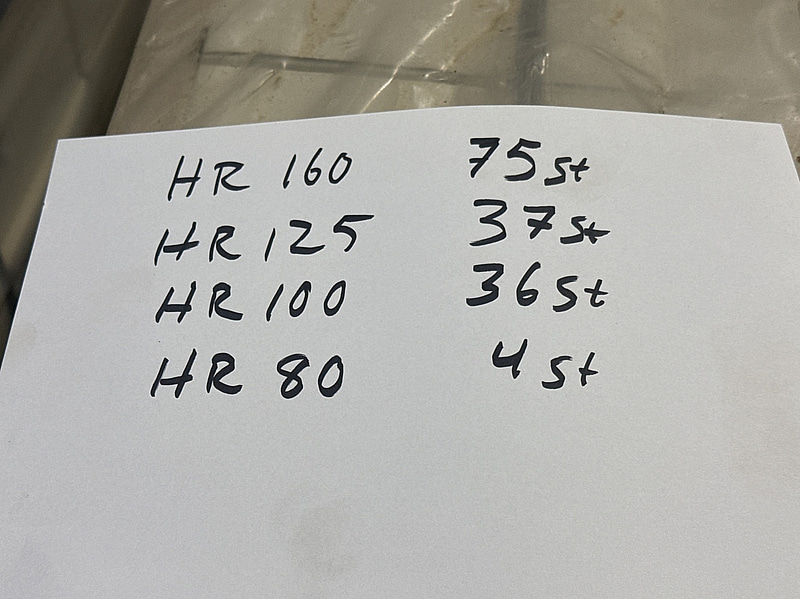 HR 160 75 st
HR 125 37 st
HR 100 36 st
HR 80 4 st